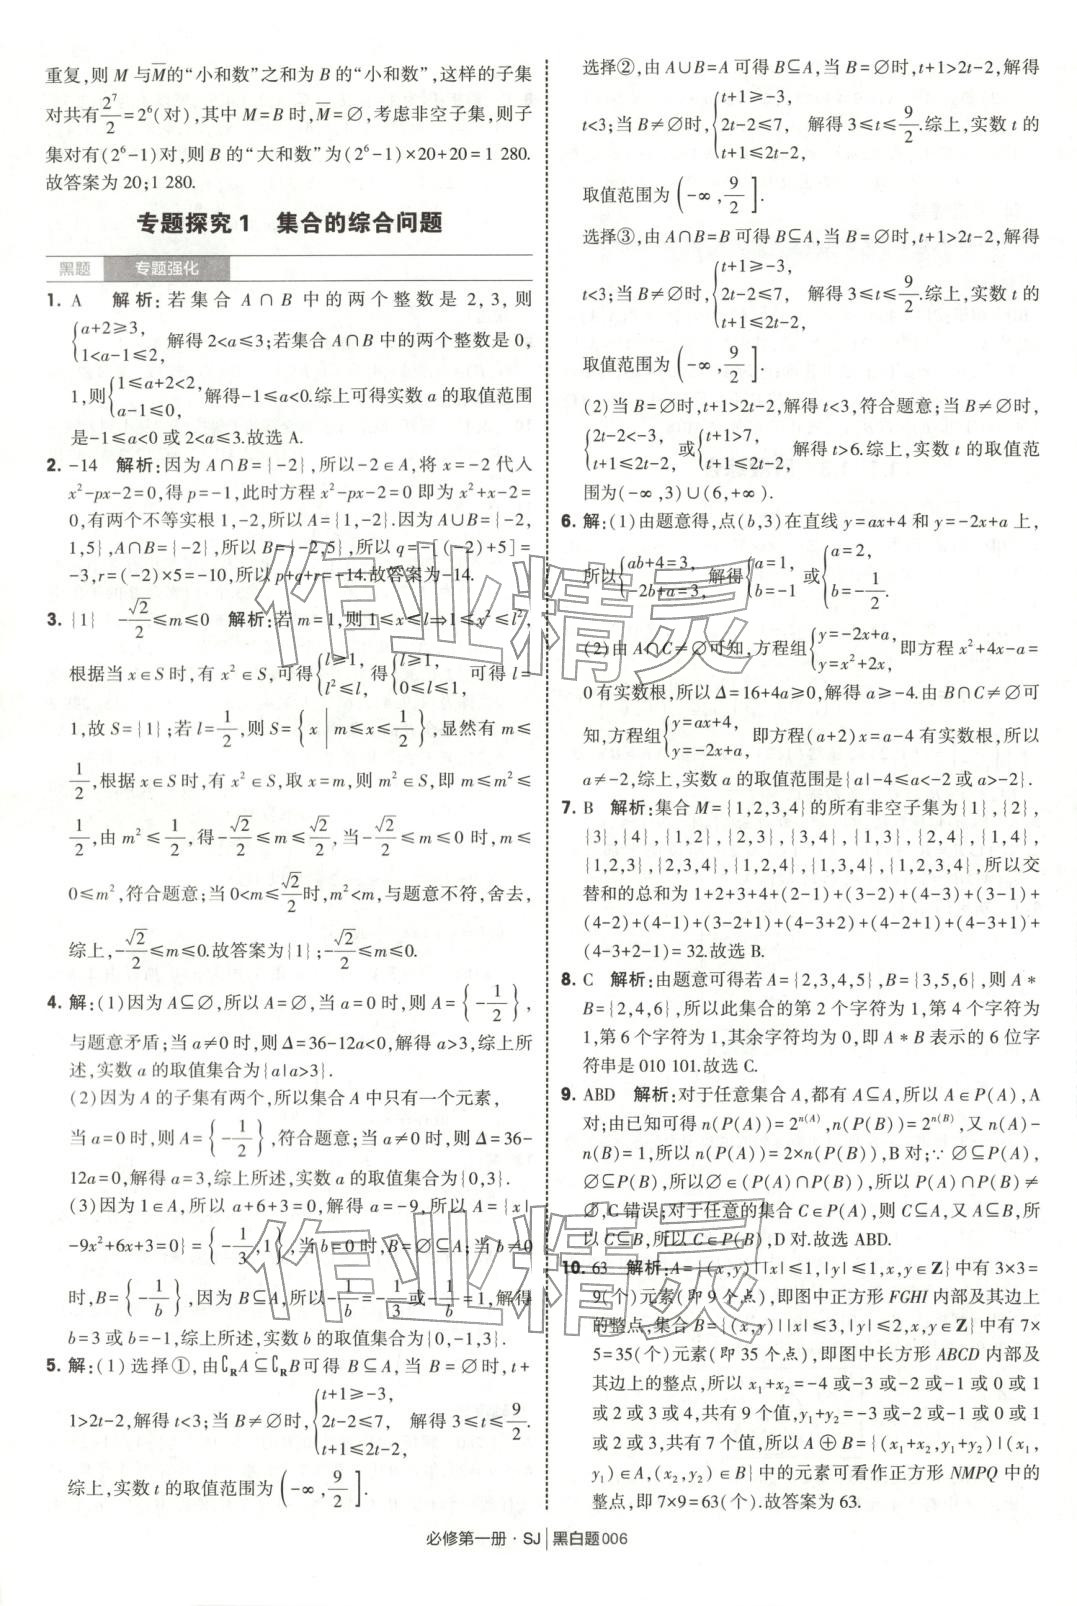 重复,则 M 与M̅的“小和数”之和为 B 的“小和数”,这样的子集
对共有2⁷/2=2⁶(对),其中 M=B 时,M̅=∅,考虑非空子集,则子
集对有(2⁶-1)对,则 B 的“大和数”为(2⁶-1)×20+20=1 280.
故答案为 20;1 280.
专题探究 1 集合的综合问题
黑题 专题强化
1. A 解析:若集合 A∩B 中的两个整数是 2,3,则
{a+2≥3, 1<a-1≤2, 解得 2<a≤3;若集合 A∩B 中的两个整数是 0,
1,则{1≤a+2<2, a-1≤0, 解得-1≤a<0.综上可得实数 a 的取值范围
是-1≤a<0 或 2<a≤3.故选 A.
2. -14 解析:因为 A∩B={-2},所以-2∈A,将 x=-2 代入
x²-px-2=0,得 p=-1,此时方程 x²-px-2=0 即为 x²+x-2=
0,有两个不等实根 1,-2,所以 A={1,-2}.因为 A∪B={-2,
1,5},A∩B={-2},所以 B={-2,5},所以 q=-[(-2)+5]=
-3,r=(-2)×5=-10,所以 p+q+r=-14.故答案为-14.
3. {1} -√2/2≤m≤0 解析:若 m=1,则 1≤x≤l⇒1≤x²≤l²,
根据当 x∈S 时,有 x²∈S,可得{l≥1, l²≤l, 得{l≥1, 0≤l≤1, 可得 l=
1,故 S={1};若 l=1/2,则 S={x|m≤x≤1/2},显然有 m≤
1/2,根据 x∈S 时,有 x²∈S,取 x=m,则 m²∈S,即 m≤m²≤
1/2,由 m²≤1/2,得-√2/2≤m≤√2/2,当-√2/2≤m≤0 时,m≤
0≤m²,符合题意;当 0<m≤√2/2时,m²<m,与题意不符,舍去,
综上,-√2/2≤m≤0.故答案为{1};-√2/2≤m≤0.
4. 解:(1)因为 A⊆∅,所以 A=∅,当 a=0 时,则 A={-1/2},
与题意矛盾;当 a≠0 时,则 Δ=36-12a<0,解得 a>3,综上所
述,实数 a 的取值集合为{a|a>3}.
(2)因为 A 的子集有两个,所以集合 A 中只有一个元素,
当 a=0 时,则 A={-1/2},符合题意;当 a≠0 时,则 Δ=36-
12a=0,解得 a=3,综上所述,实数 a 的取值集合为{0,3}.
(3)因为 1∈A,所以 a+6+3=0,解得 a=-9,所以 A={x|
-9x²+6x+3=0}={-1/3,1},当 b=0 时,B=∅⊆A;当 b≠0
时,B={-1/b},因为 B⊆A,所以-1/b=-1/3或-1/b=1,解得
b=3 或 b=-1,综上所述,实数 b 的取值集合为{0,-1,3}.
5. 解:(1)选择①,由∁RA⊆∁RB可得 B⊆A,当 B=∅时,t+
1>2t-2,解得 t<3;当 B≠∅时,{t+1≥-3, 2t-2≤7, t+1≤2t-2, 解得 3≤t≤9/2.
综上,实数 t 的取值范围为(-∞,9/2].
选择②,由 A∪B=A 可得 B⊆A,当 B=∅时,t+1>2t-2,解得
t<3;当 B≠∅时,{t+1≥-3, 2t-2≤7, t+1≤2t-2, 解得 3≤t≤9/2.综上,实数 t 的
取值范围为(-∞,9/2].
选择③,由 A∩B=B 可得 B⊆A,当 B=∅时,t+1>2t-2,解得
t<3;当 B≠∅时,{t+1≥-3, 2t-2≤7, t+1≤2t-2, 解得 3≤t≤9/2.综上,实数 t 的
取值范围为(-∞,9/2].
(2)当 B=∅时,t+1>2t-2,解得 t<3,符合题意;当 B≠∅时,
{2t-2<-3, t+1≤2t-2 或{t+1>7, t+1≤2t-2, 解得 t>6.综上,实数 t 的取值范
围为(-∞,3)∪(6,+∞).
6. 解:(1)由题意得,点(b,3)在直线 y=ax+4 和 y=-2x+a 上,
所以{ab+4=3, -2b+a=3, 解得{a=1, b=-1 或{a=2, b=-1/2.
(2)由 A∩C≠∅可知,方程组{y=-2x+a, y=x²+2x, 即方程 x²+4x-a=
0 有实数根,所以 Δ=16+4a≥0,解得 a≥-4.由 B∩C≠∅可
知,方程组{y=ax+4, y=-2x+a, 即方程(a+2)x=a-4 有实数根,所以
a≠-2,综上,实数 a 的取值范围是{a|-4≤a<-2 或 a>-2}.
7. B 解析:集合 M={1,2,3,4}的所有非空子集为{1},{2},
{3},{4},{1,2},{2,3},{3,4},{1,3},{2,4},{1,4},
{1,2,3},{2,3,4},{1,2,4},{1,3,4},{1,2,3,4},所以交
替和的总和为 1+2+3+4+(2-1)+(3-2)+(4-3)+(3-1)+
(4-2)+(4-1)+(3-2+1)+(4-3+2)+(4-2+1)+(4-3+1)+
(4-3+2-1)=32.故选 B.
8. C 解析:由题意可得若 A={2,3,4,5},B={3,5,6},则 A*
B={2,4,6},所以此集合的第 2 个字符为 1,第 4 个字符为
1,第 6 个字符为 1,其余字符均为 0,即 A*B 表示的 6 位字
符串是 010 101.故选 C.
9. ABD 解析:对于任意集合 A,都有 A⊆A,所以 A∈P(A),A
对;由已知可得 n(P(A))=2ⁿ⁽ᴬ⁾,n(P(B))=2ⁿ⁽ᴮ⁾,又 n(A)-
n(B)=1,所以 n(P(A))=2×n(P(B)),B 对;∵∅⊆P(A),
∅⊆P(B),所以∅∈(P(A)∩P(B)),所以 P(A)∩P(B)≠
∅,C 错误;对于任意的集合 C∈P(A),则 C⊆A,又 A⊆B,所
以 C⊆B,所以 C∈P(B),D 对.故选 ABD.
10. 63 解析:A={(x,y)||x|≤1,|y|≤1,x,y∈Z}中有 3×3=
9(个)元素(即 9 个点),即图中正方形 FGHI 内部及其边上
的整点,集合 B={(x,y)||x|≤3,|y|≤2,x,y∈Z}中有 7×
5=35(个)元素(即 35 个点),即图中长方形 ABCD 内部及
其边上的整点,所以 x₁+x₂=-4 或-3 或-2 或-1 或 0 或 1
或 2 或 3 或 4,共有 9 个值,y₁+y₂=-3 或-2 或-1 或 0 或 1
或 2 或 3,共有 7 个值,所以 A⊕B={(x₁+x₂,y₁+y₂)|(x₁,
y₁)∈A,(x₂,y₂)∈B}中的元素可看作正方形 NMPQ 中的
整点,即 7×9=63(个).故答案为 63.
必修第一册·SJ 黑白题 006
作业精灵
作业精灵